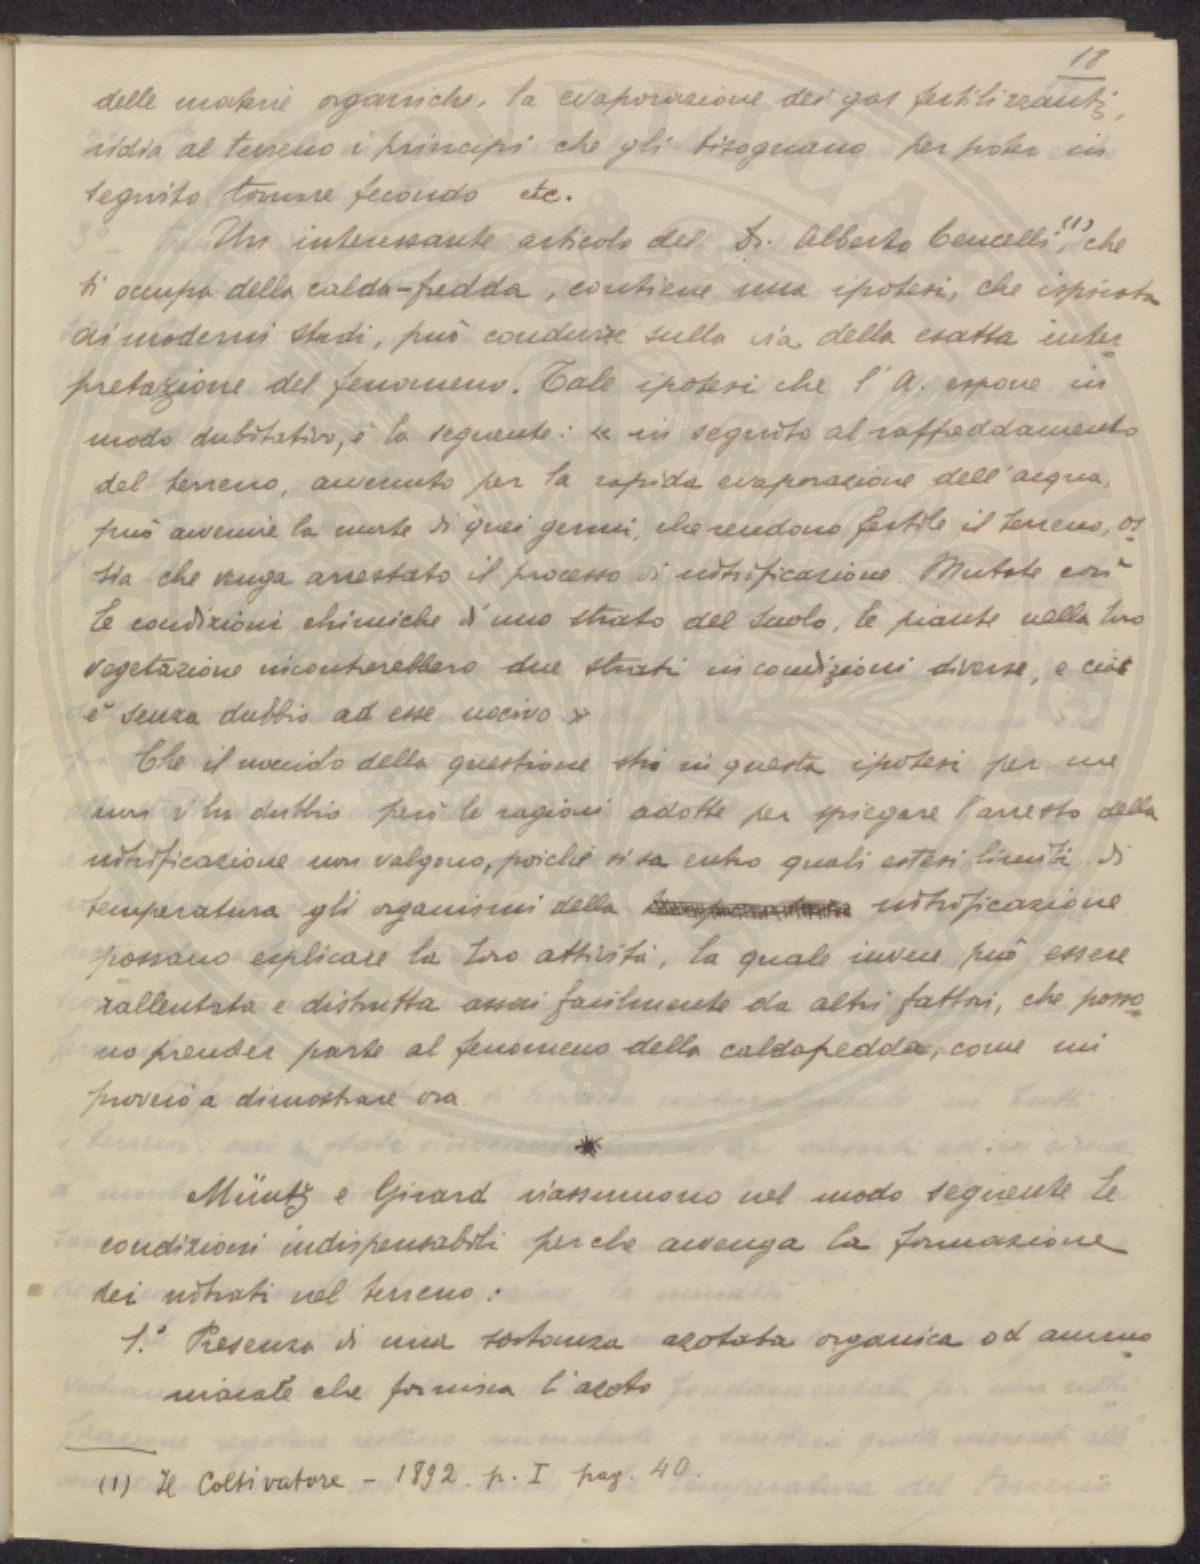 18
delle materie organiche, la evaporazione dei gas fertilizzanti,
ridia al terreno i principi che gli bisognano per poter in
seguito tornare fecondo etc.
Un interessante articolo del Dr. Alberto Cencelli (1), che
si occupa della calda-fredda, contiene una ipotesi, che ispirata
ai moderni studi, può condurre sulla via della esatta inter-
pretazione del fenomeno. Tale ipotesi che l'A. espone in
modo dubitativo, è la seguente: « in seguito al raffreddamento
del terreno, avvenuto per la rapida evaporazione dell'acqua,
può avvenire la morte di quei germi, che rendono fertile il terreno, os-
sia che venga arrestato il processo di nitrificazione. Mutate così
le condizioni chimiche di uno strato del suolo, le piante nella loro
vegetazione incontrerebbero due strati in condizioni diverse, e ciò
è senza dubbio ad esse nocivo »
Che il nocciolo della questione stia in questa ipotesi per me
non v'ha dubbio però le ragioni adotte per spiegare l'arresto della
nitrificazione non valgono, poichè si sa entro quali estesi limiti di
temperatura gli organismi della nitrificazione
possano esplicare la loro attività, la quale invece può essere
rallentata e distrutta assai facilmente da altri fattori, che posso-
no prender parte al fenomeno della caldafredda, come mi
proverò a dimostrare ora.
*
Müntz e Girard riassumono nel modo seguente le
condizioni indispensabili perche avvenga la formazione
dei nitrati nel terreno:
1.° Presenza di una sostanza azotata organica od ammo-
niacale che fornisca l'azoto
(1) Il Coltivatore - 1892. p. I pag. 40.